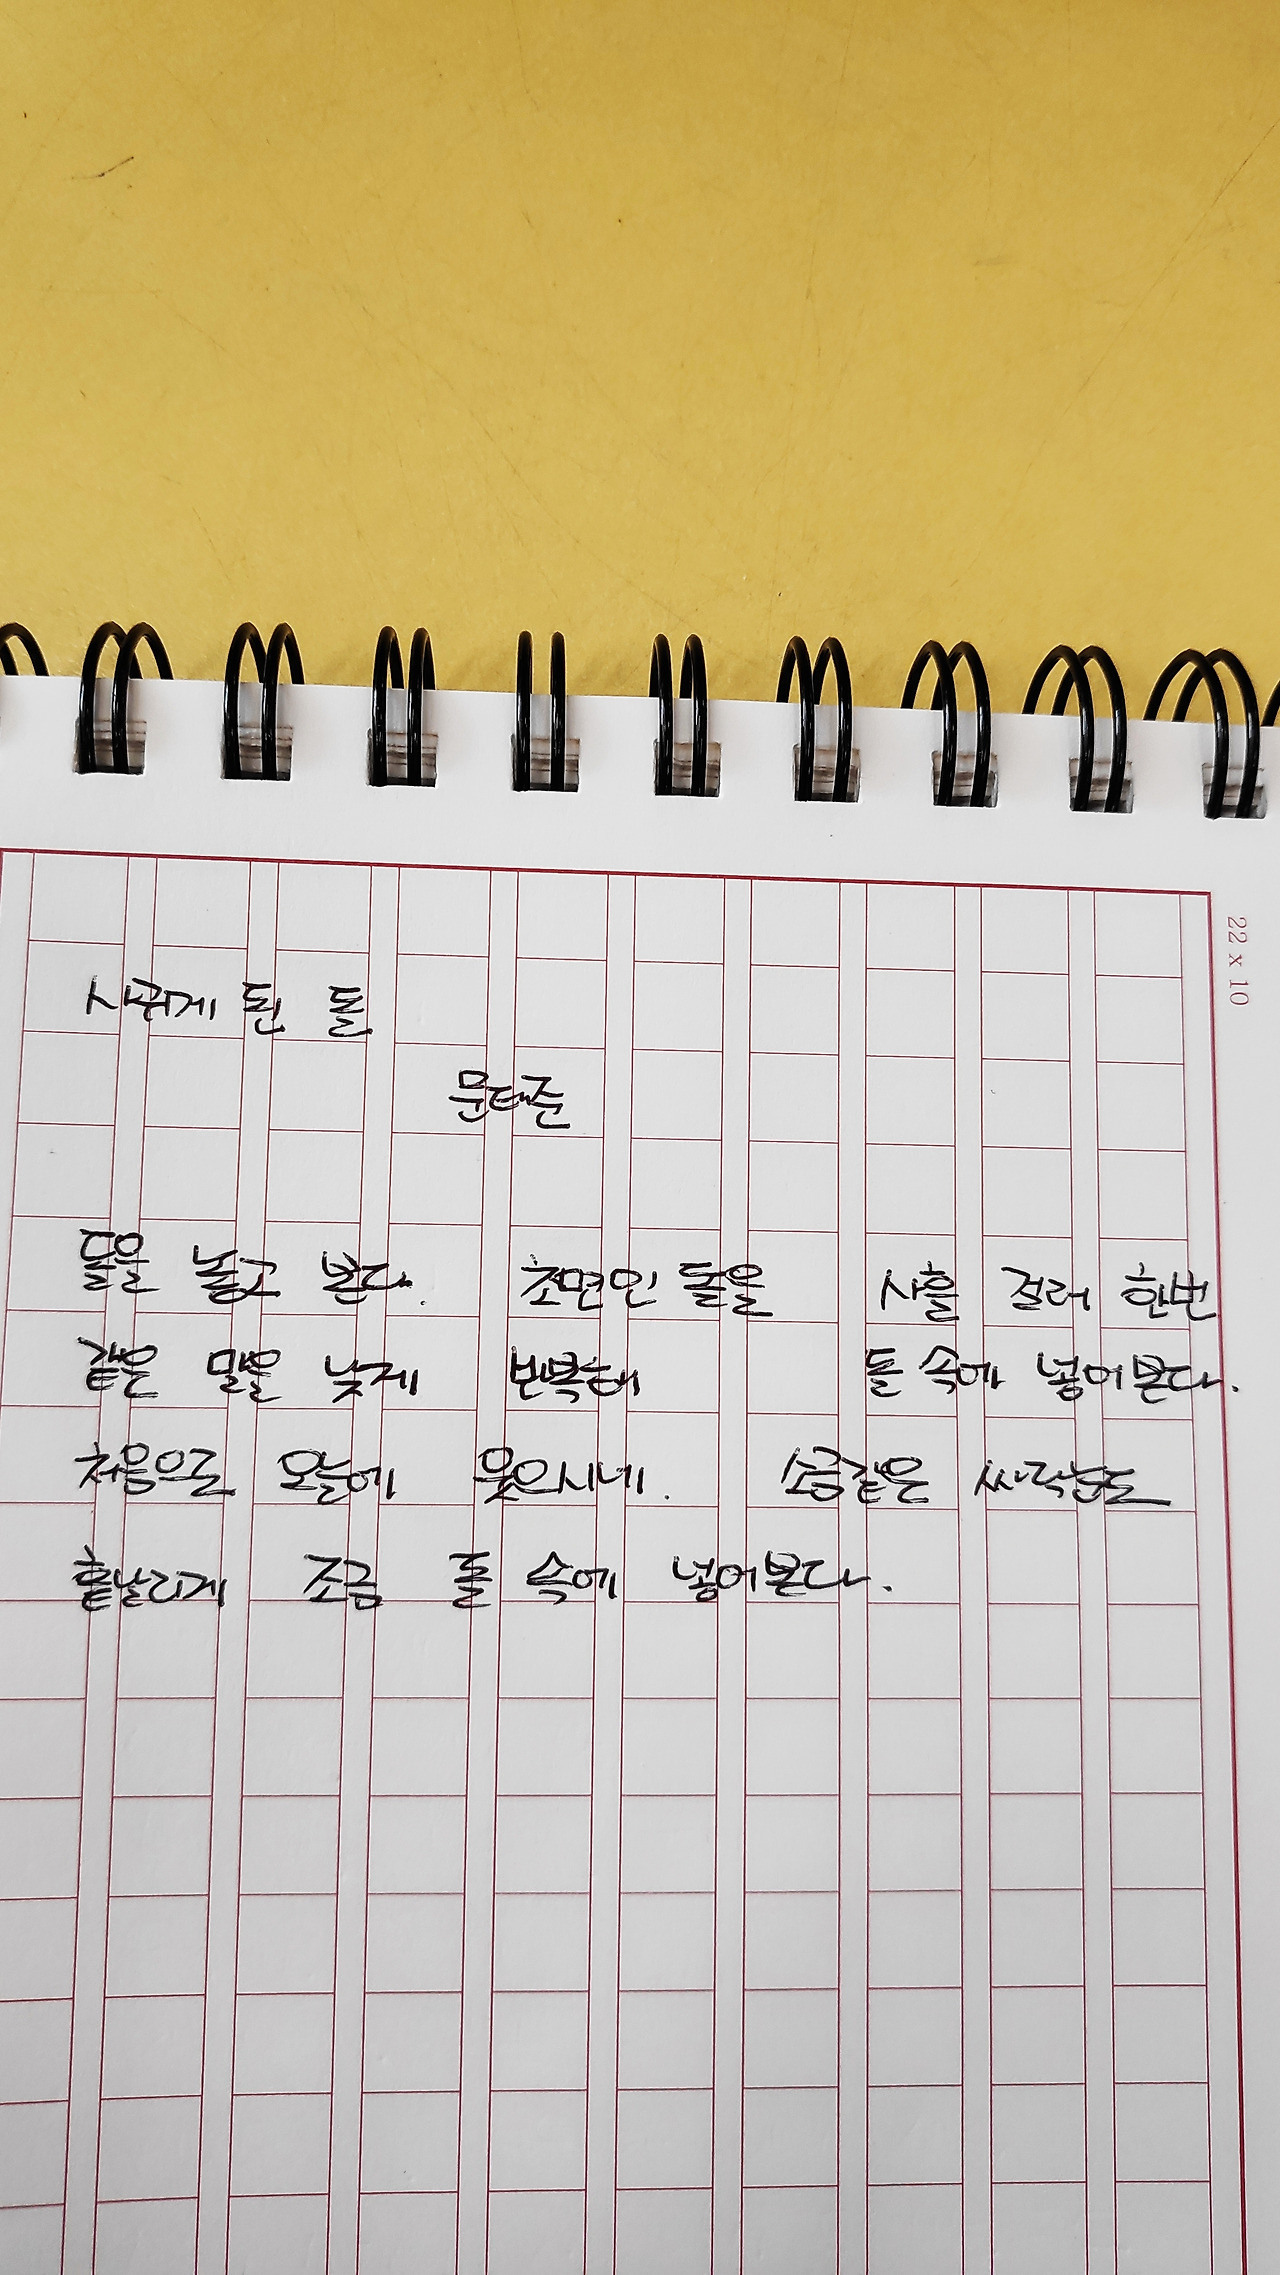 22 x 10
사귀게 된 돌
문태준
돌을 놓고 본다. 초면인 돌을 사흘 걸러 한번
같은 말을 낮게 반복해 돌 속에 넣어본다.
처음으로 오늘에 웃으시네. 소금같은 싸락눈도
흩날리게 조금 돌 속에 넣어본다.